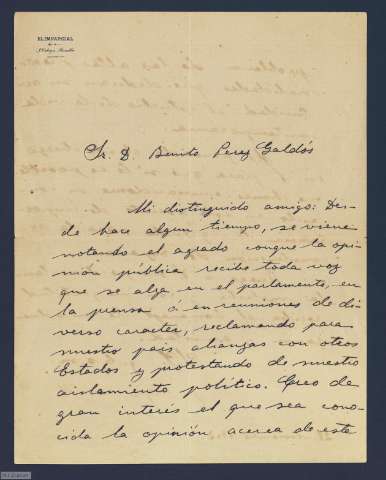 EL IMPARCIAL
Sr. D. Benito Perez Galdós
Mi distinguido amigo: Des-
de hace algun tiempo, se viene
notando el agrado conque la opi-
nión pública recibe toda voz
que se alza en el parlamento, en
la prensa ó en reuniones de di-
verso caracter, reclamando para
nuestro pais alianzas con otros
Estados y protestando de nuestro
aislamiento político. Creo de
gran interés el que sea cono-
cida la opinión acerca de este